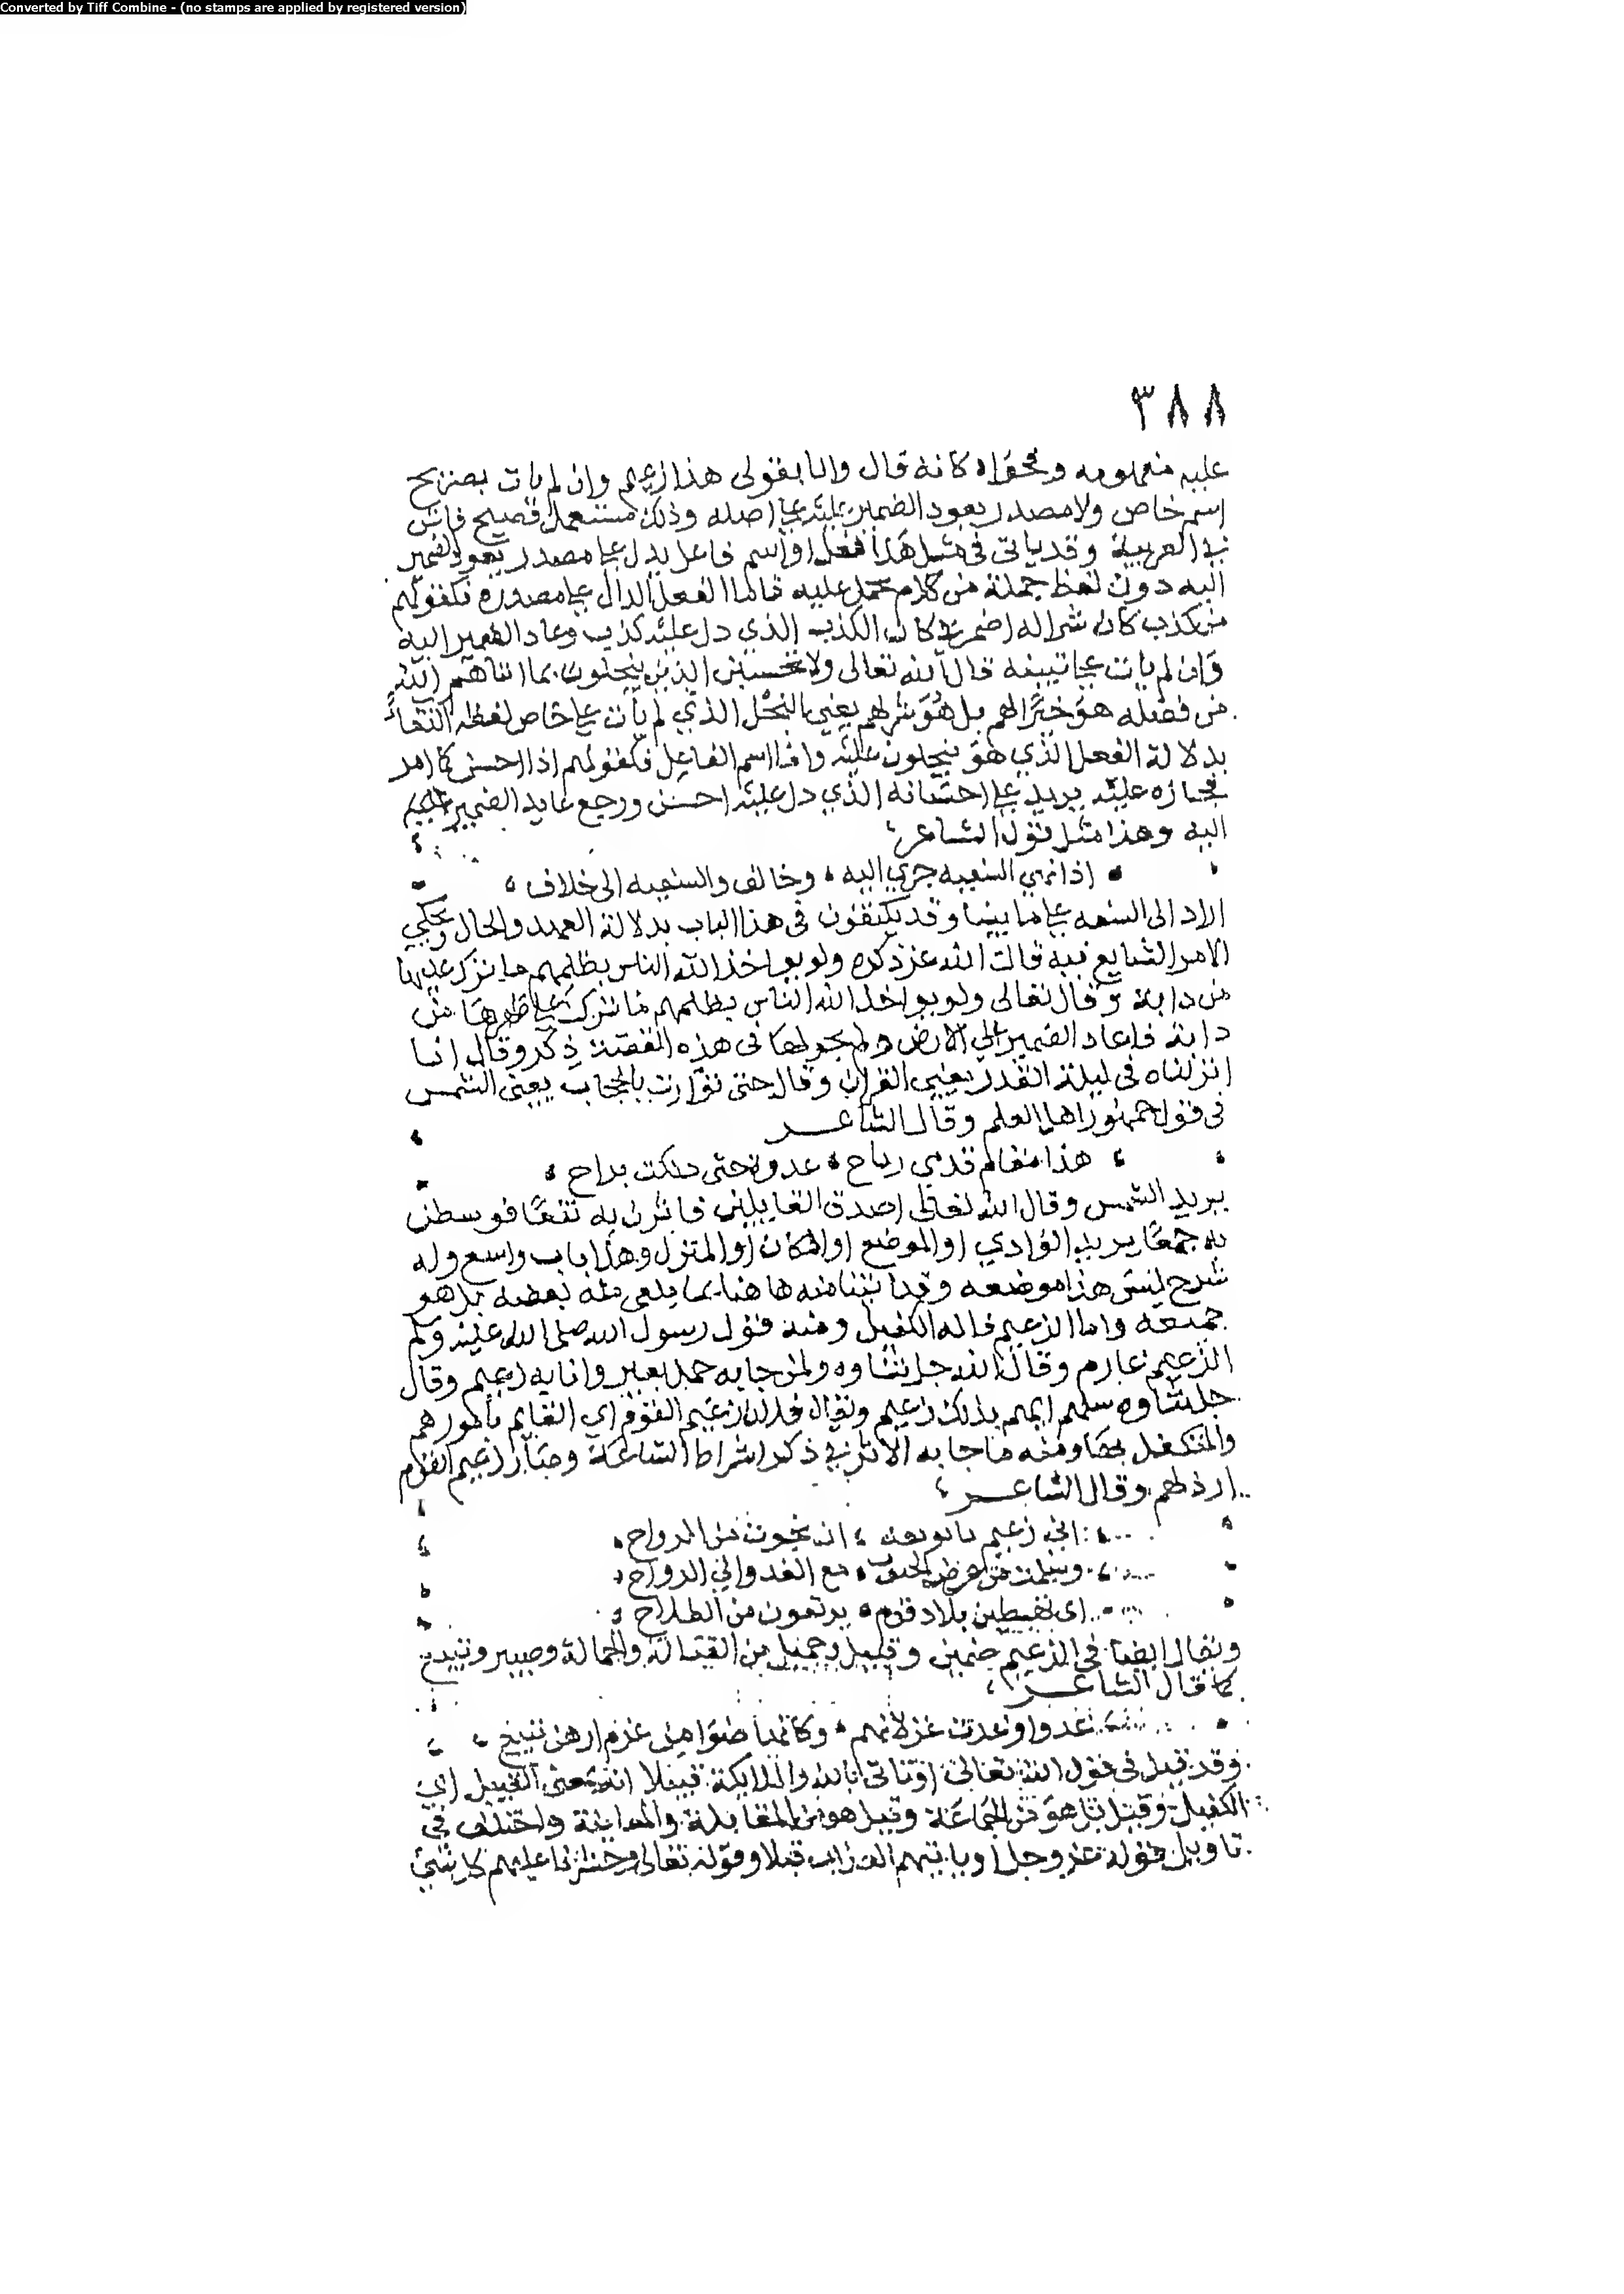 Converted by Tiff Combine - (no stamps are applied by registered version)
٣٨٨
عليه مفهومه وفحواه كانه قال وانا بقولى هذا زعيم وان لم يات بصريح
اسم خاص ولا مصدر يعود الضمير عليه على اصله وذلك مستعمل فصيح فاش
في العربية وقد ياتى فى مثل هذا فعل او اسم فاعل يدل على مصدر يعود الضمير
اليه دون لفظ جملة من كلام يحمل عليه فاما الفعل الدال على مصدره فكقولهم
من كذب كان شرا له اضمر في كان الكذب الذي دل عليه كذب وعاد الضمير اليه
وان لم يات على تبينه قال الله تعالى ولا تحسبن الذين يبخلون بما اتاهم الله
من فضله هو خيرا لهم بل هو شر لهم يعني البخل الذي لم يات على خاص لفظه اكتفاءً
بدلالة الفعل الذي هو يبخلون عليه واما اسم الفاعل فكقولهم اذا احسن كامر
فجازه عليه يريد على احسانه الذي دل عليه احسن ورجع عايد الضمير
اليه وهذا مثل قول الشاعر
اذا نهي السفيه جري اليه وخالف والسفيه الى خلاف
اراد الى السفه على ما بينا وقد يكتفون فى هذا الباب بدلالة العهد والحال
الامر الشايع فيه قال الله عز ذكره ولو يواخذ الله الناس بظلمهم ما ترك عليها
من دابة وقال تعالى ولو يواخذ الله الناس بظلمهم ما ترك على ظهرها من
دابة فاعاد الضمير الى الارض ولم يجر لها فى هذه القصة ذكر وقال انا
انزلناه فى ليلة القدر يعني القران وقال حتى توارت بالحجاب يعنى الشمس
فى قول جمهور اهل العلم وقال الشاعر
هذا مقام قدمي رباح غدوة حتى دلكت براح
يريد الشمس وقال الله تعالى اصدق القايلين فاثرن به نقعا فوسطن
به جمعا يريد الوادي او الموضع او المكان او المنزل وهذا باب واسع وله
شرح ليس هذا موضعه وقد اتينا منه هاهنا بما يكفى منه بعضه بل هو
جميعه واما الزعيم فانه الكفيل ومنه قول رسول الله صلى الله عليه وسلم
الزعيم غارم وقال الله جل ثناوه ولمن جا به حمل بعير وانا به زعيم وقال
جل ثناوه سلهم ايهم بذلك زعيم ويقال فلان زعيم القوم اي القايم بامورهم
والمتكفل بها ومنه ما جا به الاثر في ذكر اشراط الساعة وصار زعيم القوم
ارذلهم وقال الشاعر
اني زعيم يا نويقة ان نجوت من الرواح
وسلمت من عرض الحتوف مع الغدو الي الرواح
اى تهبطين بلاد قوم يرتعون من الطلاح
ويقال ايضا في الزعيم ضمين وقبيل وحميل من القبالة والحمالة وصبير وتبيع
كما قال الشاعر
غدوا وغدت غزلانهم وكانها ضوامن غرم ارهن تبيع
وقد قيل فى قول الله تعالى او تاتى بالله والملايكة قبيلا انه بمعنى القبيل اي
الكفيل وقيل بل هو من الجماعة وقيل هو من المقابلة والمعاينة واختلف في
تاويل قوله عز وجل او ياتيهم العذاب قبلا وقوله تعالى وحشرنا عليهم كل شيئ